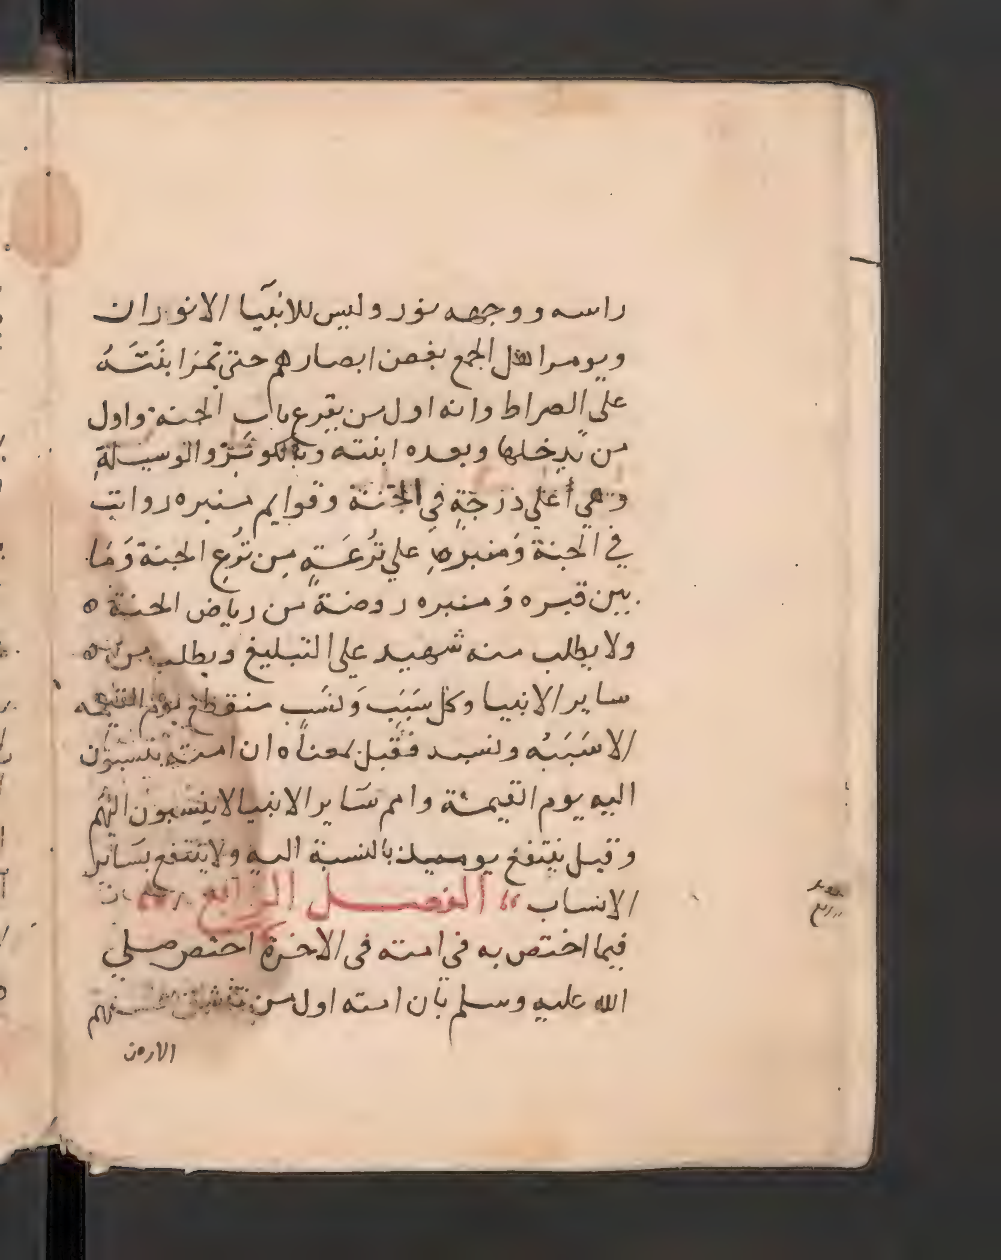 راسه ووجهه نور وليس للانبيآ الا نوران
ويومر اهل الجمع بغض ابصارهم حتى تمر ابنَتَهُ
على الصراط وانه اول من يقرع باب الجنة واول
من يدخلها وبعده ابنته وبالكوثر والوسيلة
وهي أعلي درجةٍ في الجنة وقوايم منبره رواتب
في الجنة ومنبره علي تُرعَةٍ من تُرع الجنة وَمَا
بين قبره وَمنبره روضة من رياض الجنة ه
ولا يطلب منه شهيد على التبليغ ويطلب من
ساير الانبيا وكل سَبَبٍ وَنسَبٍ منقطع يوم القيمه
الا سَبَبُه ونسبه فقيل معناه ان امته ينسبُون
اليه يوم القيمة وامم سَاير الانبيا لا ينسبون اليهم
وقيل ينتفع يوميذ بالنسبة اليه ولا ينتفع بسَاير
الانساب الفصل الرابع
فيما اختص به في امته في الاخرة اختص صلي
الله عليه وسلم بأن امته اول من تنشق عنهم
الارض